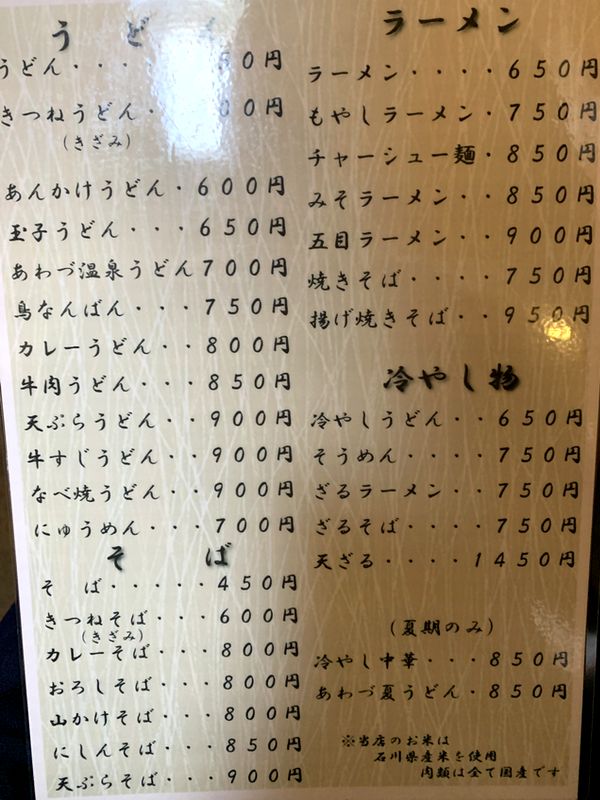 うどん
うどん・・・50円
きつねうどん・00円
(きざみ)
あんかけうどん・600円
玉子うどん・・・650円
あわづ温泉うどん700円
鳥なんばん・・・750円
カレーうどん・・800円
牛肉うどん・・・850円
天ぷらうどん・・900円
牛すじうどん・・900円
なべ焼うどん・・900円
にゅうめん・・・700円
そば
そば・・・・・450円
きつねそば・・・600円
(きざみ)
カレーそば・・・800円
おろしそば・・・800円
山かけそば・・・800円
にしんそば・・・850円
天ぷらそば・・・900円
ラーメン
ラーメン・・・・650円
もやしラーメン・750円
チャーシュー麺・850円
みそラーメン・・850円
五目ラーメン・・900円
焼きそば・・・・750円
揚げ焼きそば・・950円
冷やし物
冷やしうどん・・650円
そうめん・・・・750円
ざるラーメン・・750円
ざるそば・・・・750円
天ざる・・・・1450円
(夏期のみ)
冷やし中華・・・850円
あわづ夏うどん・850円
※当店のお米は
石川県産米を使用
肉類は全て国産です